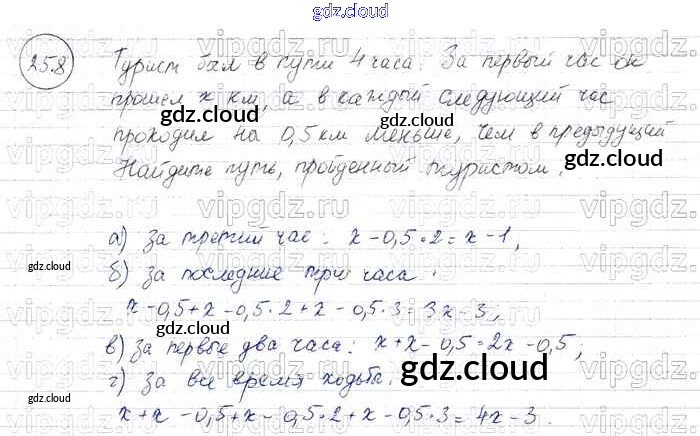 gdz.cloud
258 Турист был в пути 4 часа. За первый час он
прошел x км, а в каждый следующий час
проходил на 0,5 км меньше, чем в предыдущий
Найдите путь, пройденный туристом.
gdz.cloud
gdz.cloud
gdz.cloud
а) за третий час: x - 0,5 · 2 = x - 1,
б) за последние три часа:
gdz.cloud
gdz.cloud
x - 0,5 + x - 0,5 · 2 + x - 0,5 · 3 = 3x - 3;
gdz.cloud
в) за первые два часа: x + x - 0,5 = 2x - 0,5;
г) за все время ходьбы.
gdz.cloud
gdz.cloud
x + x - 0,5 + x - 0,5 · 2 + x - 0,5 · 3 = 4x - 3.